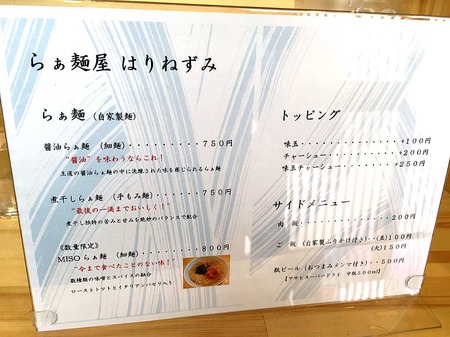 らぁ麺屋 はりねずみ
らぁ麺（自家製麺）
醤油らぁ麺（細麺）・・・・・・・・・・750円
“醤油”を味わうならこれ！
王道の醤油らぁ麺の中に洗練された味を感じられるらぁ麺
煮干しらぁ麺（手もみ麺）・・・・・・・・750円
“最後の一滴までおいしく！”
煮干し独特の苦みと甘みを絶妙のバランスで配合
《数量限定》
MISOらぁ麺（細麺）・・・・・・・・・800円
“今まで食べたことのない味！”
数種類の味噌とスパイスの融合
ローストトマトとイタリアンパセリ入り
トッピング
味玉・・・・・・・・・・・・・+100円
チャーシュー・・・・・・・・・+200円
味玉チャーシュー・・・・・・・+250円
サイドメニュー
肉飯・・・・・・・・・・・・・200円
ご飯（自家製ふりかけ付き）・・（並）100円
（大）150円
瓶ビール（おつまみメンマ付き）・・500円
【アサヒスーパードライ 中瓶500ml】